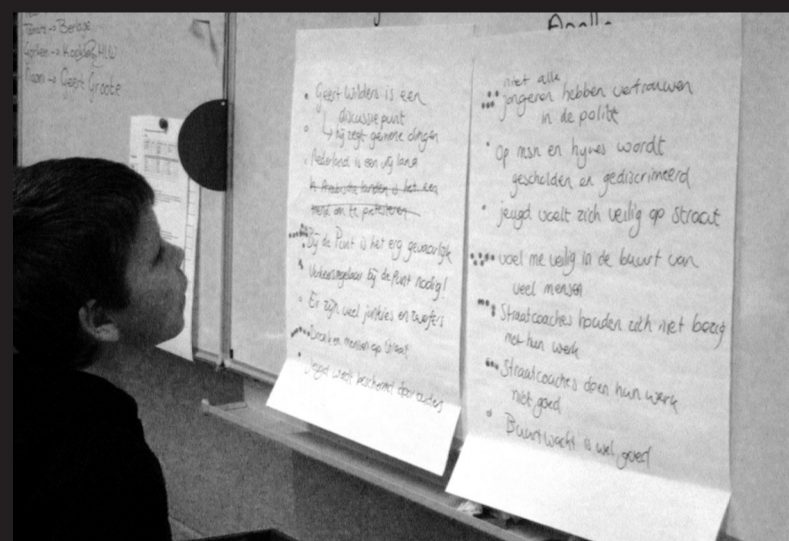 → Berlage
→ HLW
→ Geert Groote
Geert Wilders is een
discussiepunt
↳ hij zegt gemene dingen
Nederland is een vrij land
In Arabische landen is het een
om te protesteren
Bij de Punt is het erg gevaarlijk
Verkeersregelaar bij de Punt nodig!
Er zijn veel junkies en zwervers
Dronken mensen op straat
Jeugd wordt beschermd door ouders
Apollo
niet alle
jongeren hebben vertrouwen
in de politi
Op msn en hyves wordt
gescholden en gediscrimeerd
jeugd voelt zich veilig op straat
voel me veilig in de buurt van
veel mensen
Straatcoaches houden zich niet bezig
met hun werk
Straatcoaches doen hun werk
niet goed
Buurtwacht is wel goed